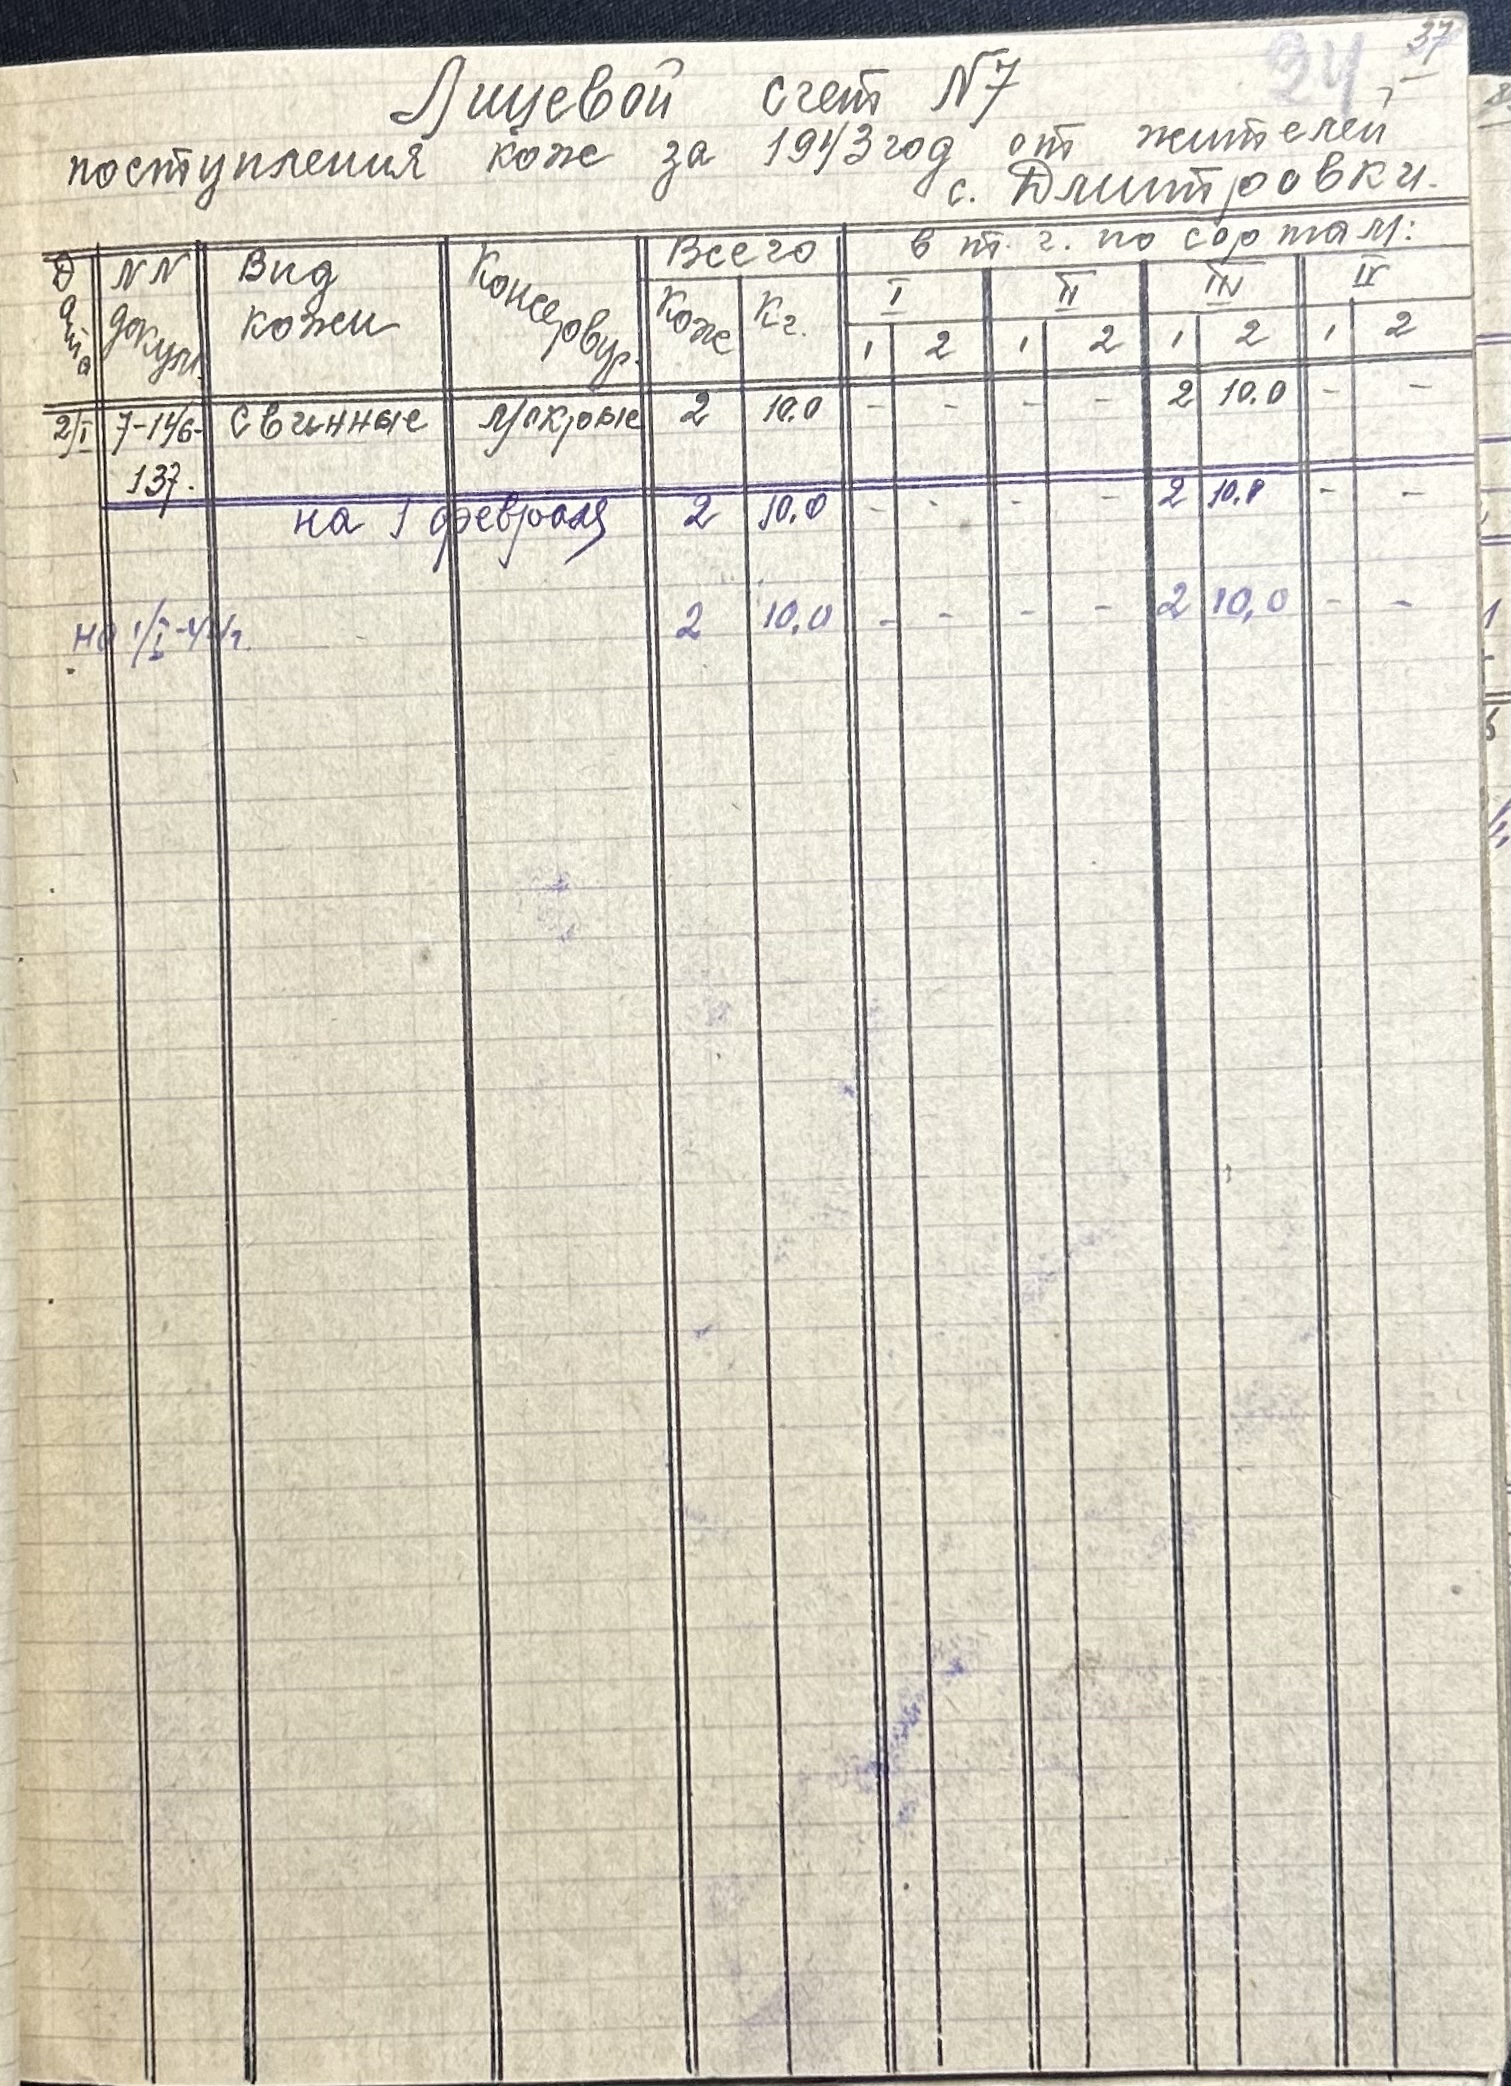 37
24
Лицевой счет N7
поступления кож за 1943 год от жителей
с. Дмитровки.
Дата NN докум. Вид кожи Консервир. Всего в т. ч. по сортам:
Кож Кг. I II III IV
1 2 1 2 1 2 1 2
2/I 7-146- Свинные мокрые 2 10.0 - - - - 2 10.0 - -
137.
на 1 февраля 2 10.0 - - - - 2 10.0 - -
на 1/I-44г. 2 10,0 - - - - 2 10,0 - -